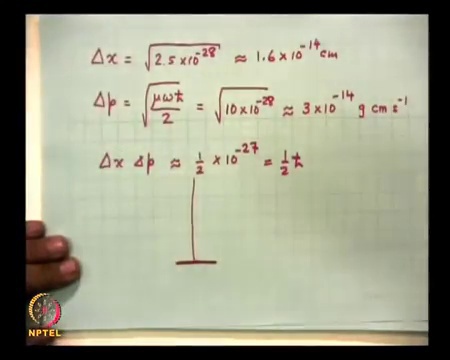 Δx = √2.5×10⁻²⁸ ≈ 1.6×10⁻¹⁴ cm
Δp = √μωħ/2 = √10×10⁻²⁸ ≈ 3×10⁻¹⁴ g cm s⁻¹
Δx Δp ≈ 1/2 × 10⁻²⁷ = 1/2 ħ
NPTEL